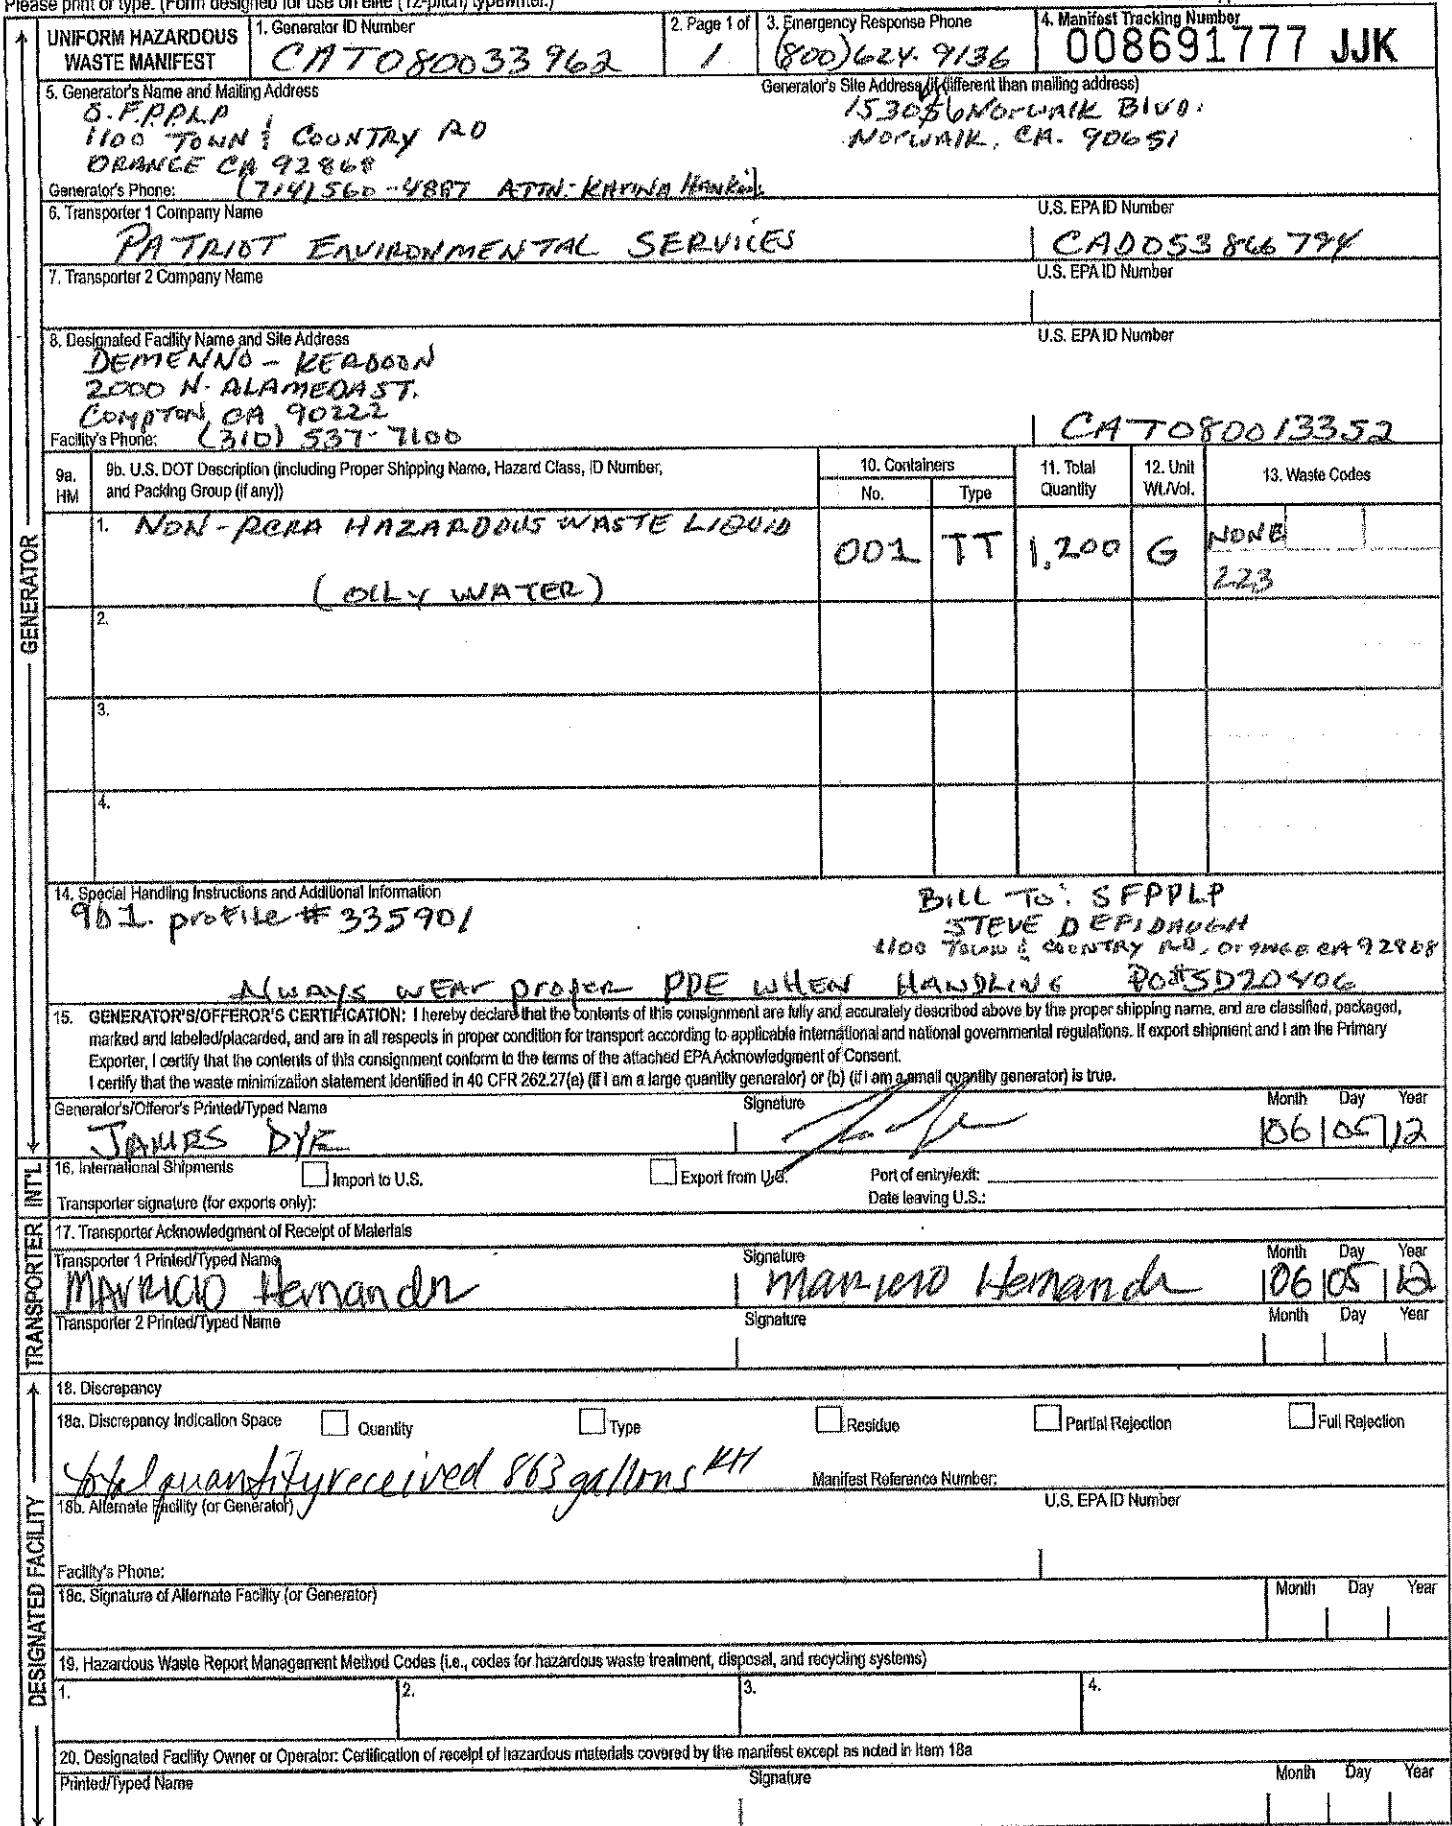 Please print or type. (Form designed for use on elite (12-pitch) typewriter.)
UNIFORM HAZARDOUS WASTE MANIFEST
1. Generator ID Number
CAT080033962
2. Page 1 of
1
3. Emergency Response Phone
(800)624-9136
4. Manifest Tracking Number
008691777 JJK
5. Generator's Name and Mailing Address
S.F.P.P.L.P
1100 TOWN & COUNTRY RD
ORANGE CA 92868
Generator's Phone: (714)560-4887 ATTN:
Generator's Site Address (if different than mailing address)
Norwalk Blvd.
Norwalk, CA. 90651
6. Transporter 1 Company Name
PATRIOT ENVIRONMENTAL SERVICES
U.S. EPA ID Number
CAD053866794
7. Transporter 2 Company Name
U.S. EPA ID Number
8. Designated Facility Name and Site Address
DEMENNO - KERDOON
2000 N. ALAMEDA ST.
COMPTON, CA 90222
Facility's Phone: (310) 537-7100
U.S. EPA ID Number
CAT080013352
9a. HM
9b. U.S. DOT Description (including Proper Shipping Name, Hazard Class, ID Number, and Packing Group (if any))
10. Containers
No.
Type
11. Total Quantity
12. Unit Wt./Vol.
13. Waste Codes
1. NON-RCRA HAZARDOUS WASTE LIQUID
(OILY WATER)
001 TT 1,200 G
NONE
223
2.
3.
4.
14. Special Handling Instructions and Additional Information
9b1. profile # 335901
BILL To: SFPPLP
STEVE DEFIBAUGH
1100 TOWN & COUNTRY RD, ORANGE CA 92868
Always wear proper PPE WHEN HANDLING
15. GENERATOR'S/OFFEROR'S CERTIFICATION: I hereby declare that the contents of this consignment are fully and accurately described above by the proper shipping name, and are classified, packaged,
marked and labeled/placarded, and are in all respects in proper condition for transport according to applicable international and national governmental regulations. If export shipment and I am the Primary
Exporter, I certify that the contents of this consignment conform to the terms of the attached EPA Acknowledgment of Consent.
I certify that the waste minimization statement identified in 40 CFR 262.27(a) (if I am a large quantity generator) or (b) (if I am a small quantity generator) is true.
Generator's/Offeror's Printed/Typed Name
JAMES DYE
Signature
Month Day Year
06 05 12
16. International Shipments
Import to U.S.
Export from U.S.
Port of entry/exit:
Transporter signature (for exports only):
Date leaving U.S.:
17. Transporter Acknowledgment of Receipt of Materials
Transporter 1 Printed/Typed Name
Mauricio Hernandz
Signature
Month Day Year
06 05 12
Transporter 2 Printed/Typed Name
Signature
Month Day Year
18. Discrepancy
18a. Discrepancy Indication Space
Quantity
Type
Residue
Partial Rejection
Full Rejection
total quantity received 863 gallons KH
Manifest Reference Number:
18b. Alternate Facility (or Generator)
U.S. EPA ID Number
Facility's Phone:
18c. Signature of Alternate Facility (or Generator)
Month Day Year
19. Hazardous Waste Report Management Method Codes (i.e., codes for hazardous waste treatment, disposal, and recycling systems)
1.
2.
3.
4.
20. Designated Facility Owner or Operator: Certification of receipt of hazardous materials covered by the manifest except as noted in Item 18a
Printed/Typed Name
Signature
Month Day Year
GENERATOR
INT'L
TRANSPORTER
DESIGNATED FACILITY